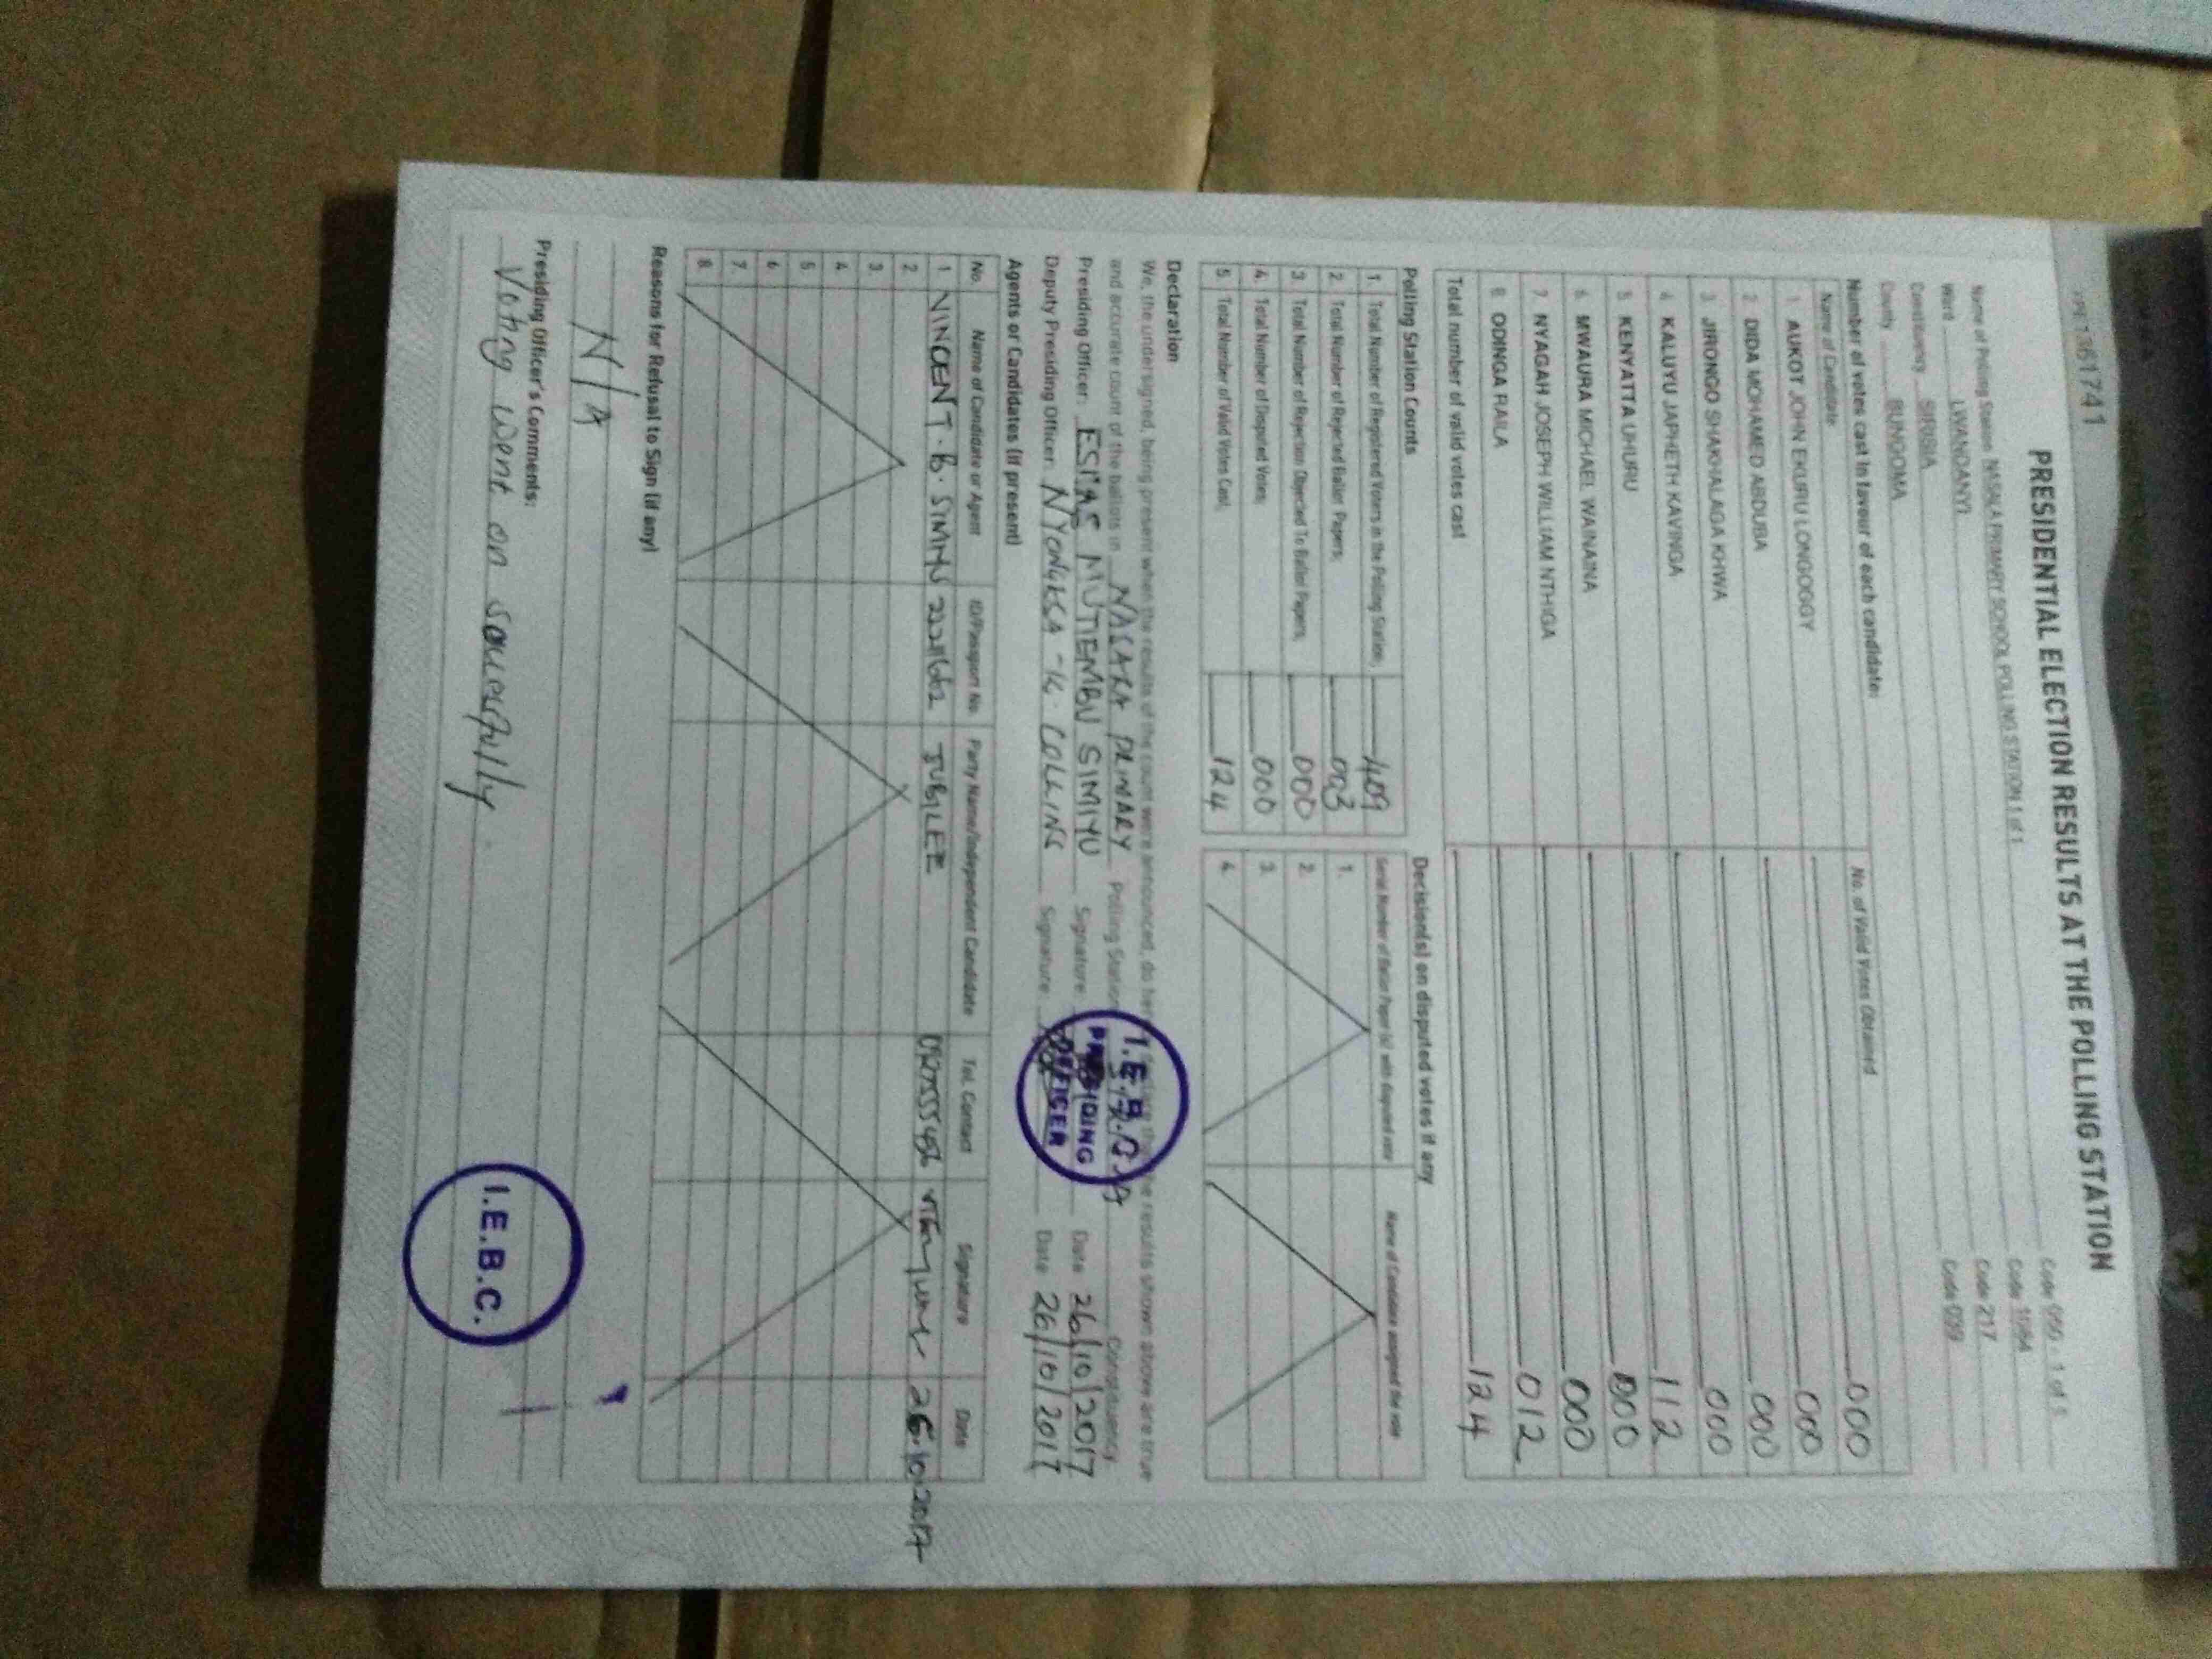 PRE 1361741
PRESIDENTIAL ELECTION RESULTS AT THE POLLING STATION
Name of Polling Station PRIMARY SCHOOL POLLING STATION 1 of 1 Code 1 of 1
Ward LWANDANYI Code 1084
Constituency SIRISIA Code 217
County BUNGOMA Code 039
Number of votes cast in favour of each candidate:
Name of Candidate No. of Valid Votes Obtained
1. AUKOT JOHN EKURU LONGOGGY 000
2. DIDA MOHAMED ABDUBA 000
3. JIRONGO SHAKHALAGA KHWA 000
4. KALUYU JAPHETH KAVINGA 000
5. KENYATTA UHURU 112
6. MWAURA MICHAEL WAINAINA 000
7. NYAGAH JOSEPH WILLIAM NTHIGA 000
8. ODINGA RAILA 012
Total number of valid votes cast 124
Polling Station Counts
1. Total Number of Registered Voters in the Polling Station; 409
2. Total Number of Rejected Ballot Papers; 003
3. Total Number of Rejection Objected To Ballot Papers; 000
4. Total Number of Disputed Votes; 000
5. Total Number of Valid Votes Cast; 124
Decision(s) on disputed votes if any
Serial Number of Ballot Paper (s) with disputed vote Name of Candidate assigned the vote
1.
2.
3.
4.
Declaration
We, the undersigned, being present when the results of the count were announced, do hereby the results shown above are true
and accurate count of the ballots in PRIMARY Polling Station Constituency
Presiding Officer: MUTIEMBU SIMIYU Signature: Date 26/10/2017
Deputy Presiding Officer: COLLINS Signature: Date 26/10/2017
I.E.B.C.
PRESIDING
OFFICER
Agents or Candidates (if present)
No. Name of Candidate or Agent ID/Passport No. Party Name/Independent Candidate Tel. Contact Signature Date
1 VINCENT . B. JUBILEE 26.10.2017
2.
3.
4.
5.
6.
7.
8.
Reasons for Refusal to Sign (if any)
N/A
Presiding Officer's Comments:
Voting went on
I.E.B.C.